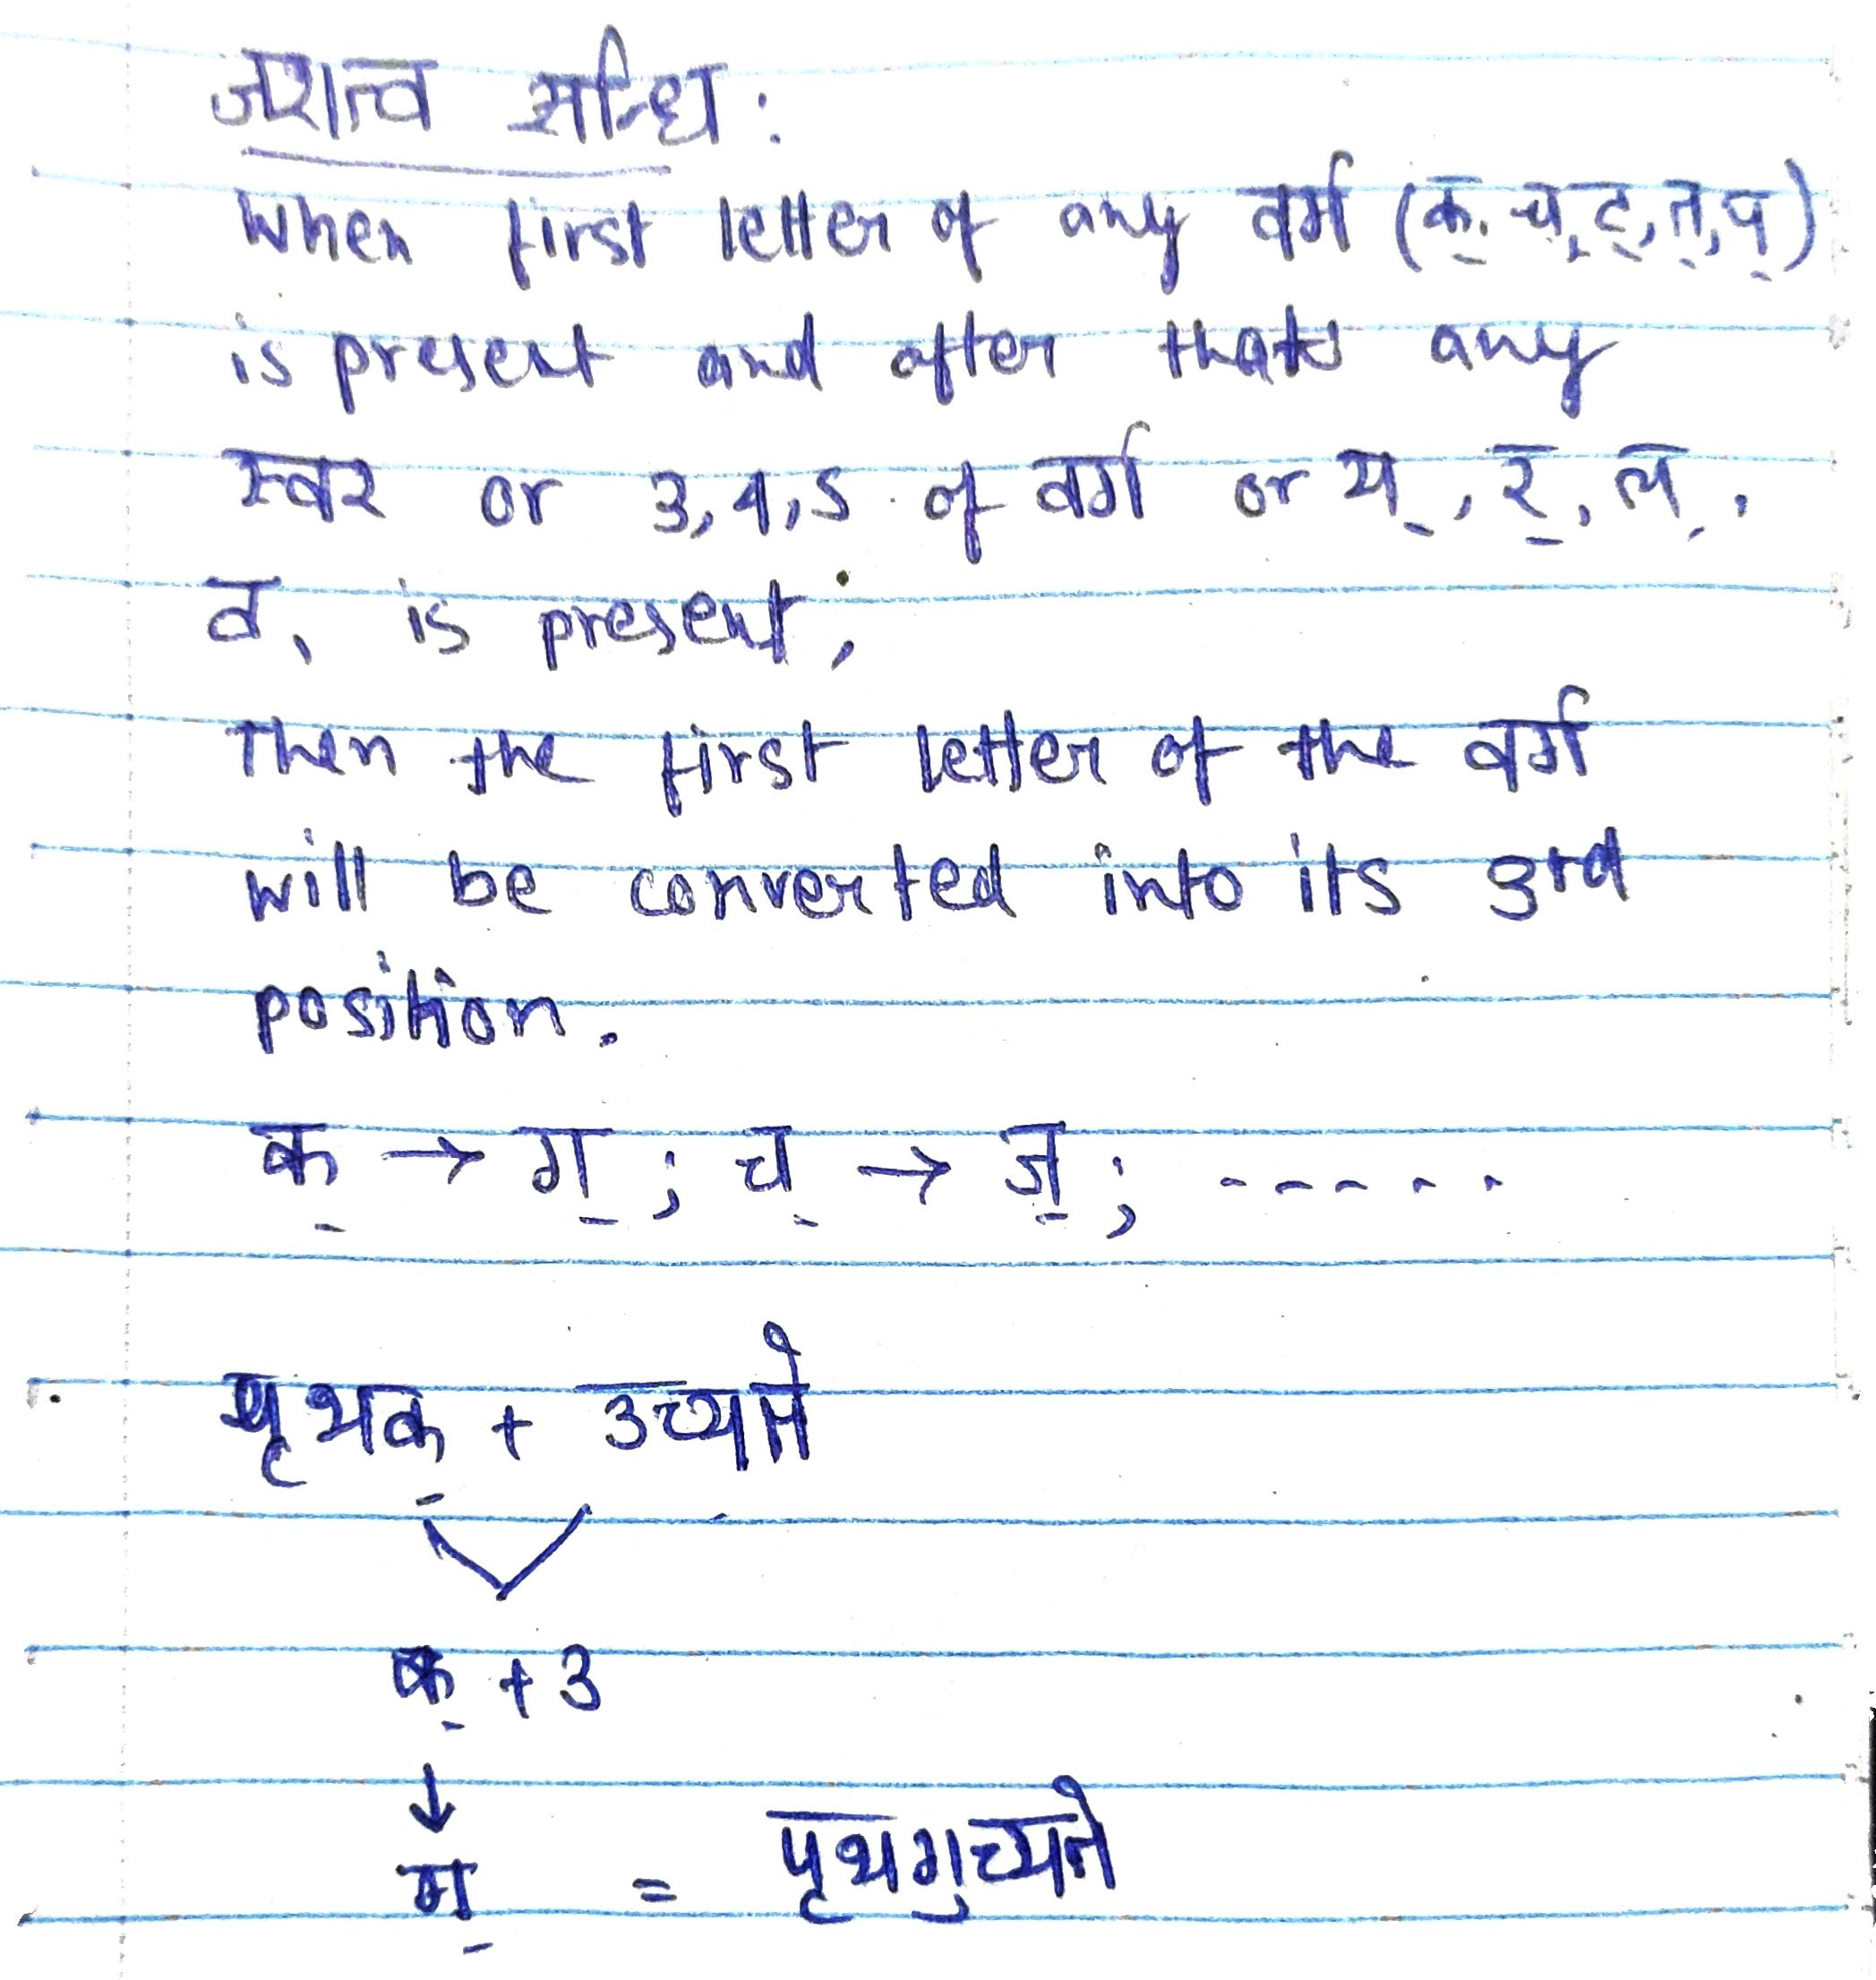 जशत्व सन्धि :
When first letter of any वर्ग (क्, च्, ट्, त्, प्)
is present and after that any
स्वर or 3,4,5 of वर्ग or य्, र्, ल्,
व्, is present,
Then the first letter of the वर्ग
will be converted into its 3rd
position.
क् → ग् ; च् → ज् ; - - - - - -
पृथक् + उच्यते
क् + उ
↓
ग् = पृथगुच्यते